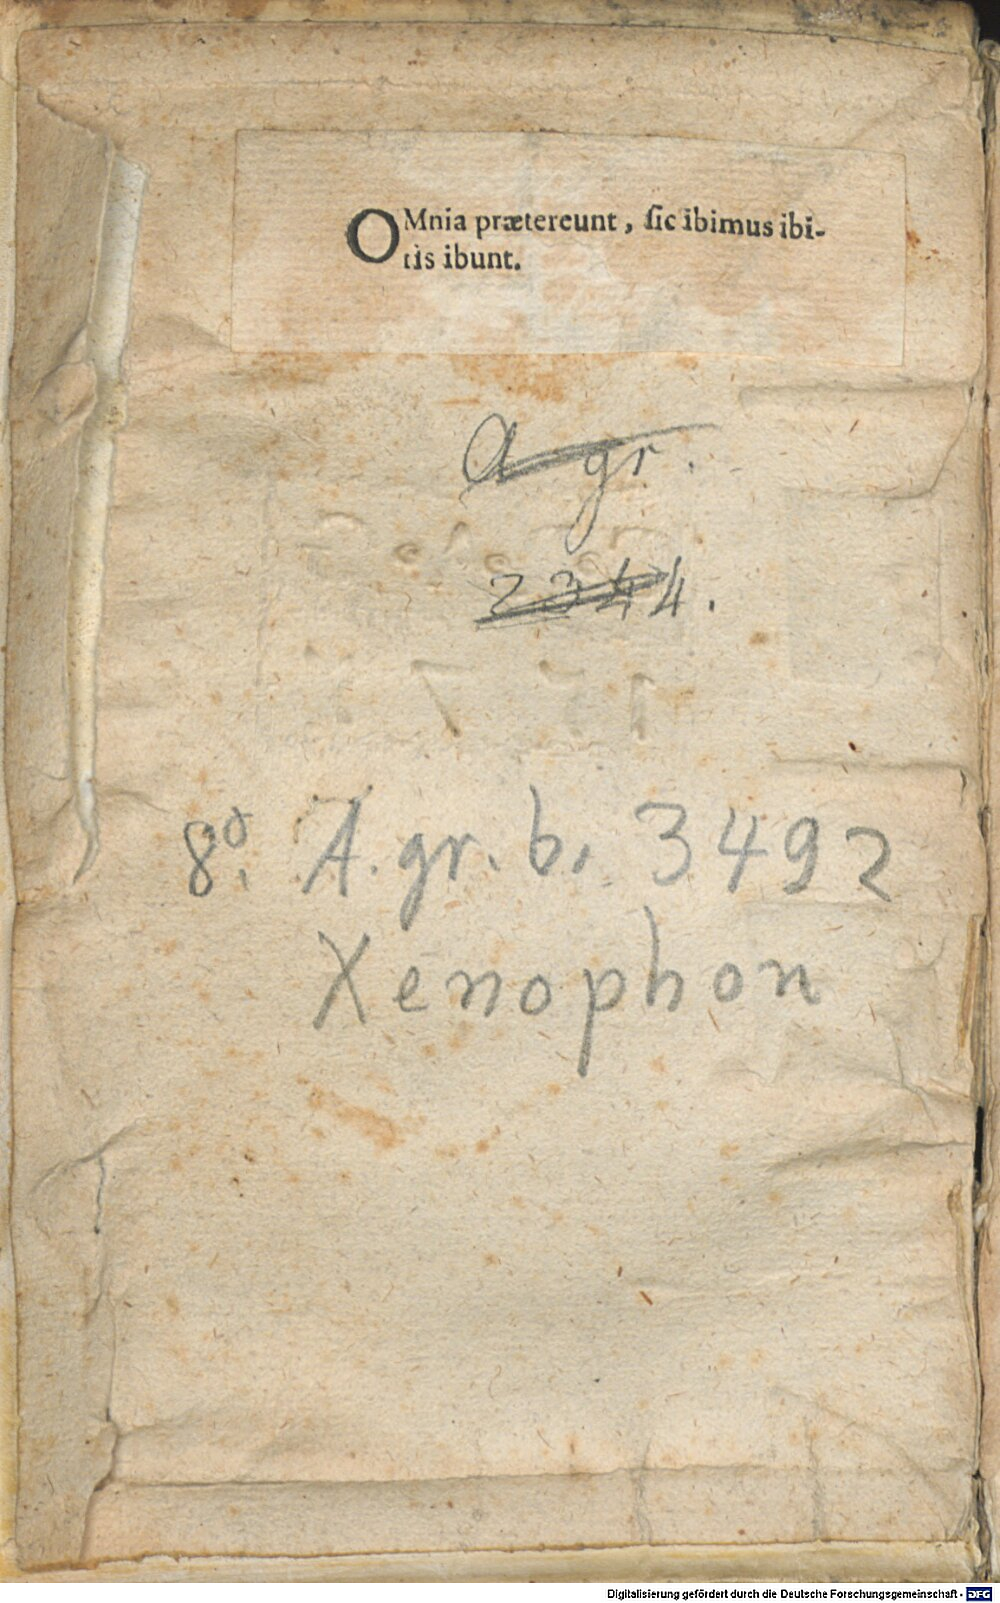 OMnia prætereunt, ſic ibimus ibi-
tis ibunt.
A gr.
2344.
8º. A. gr. b. 3492
Xenophon
Digitalisierung gefördert durch die Deutsche Forschungsgemeinschaft - DFG